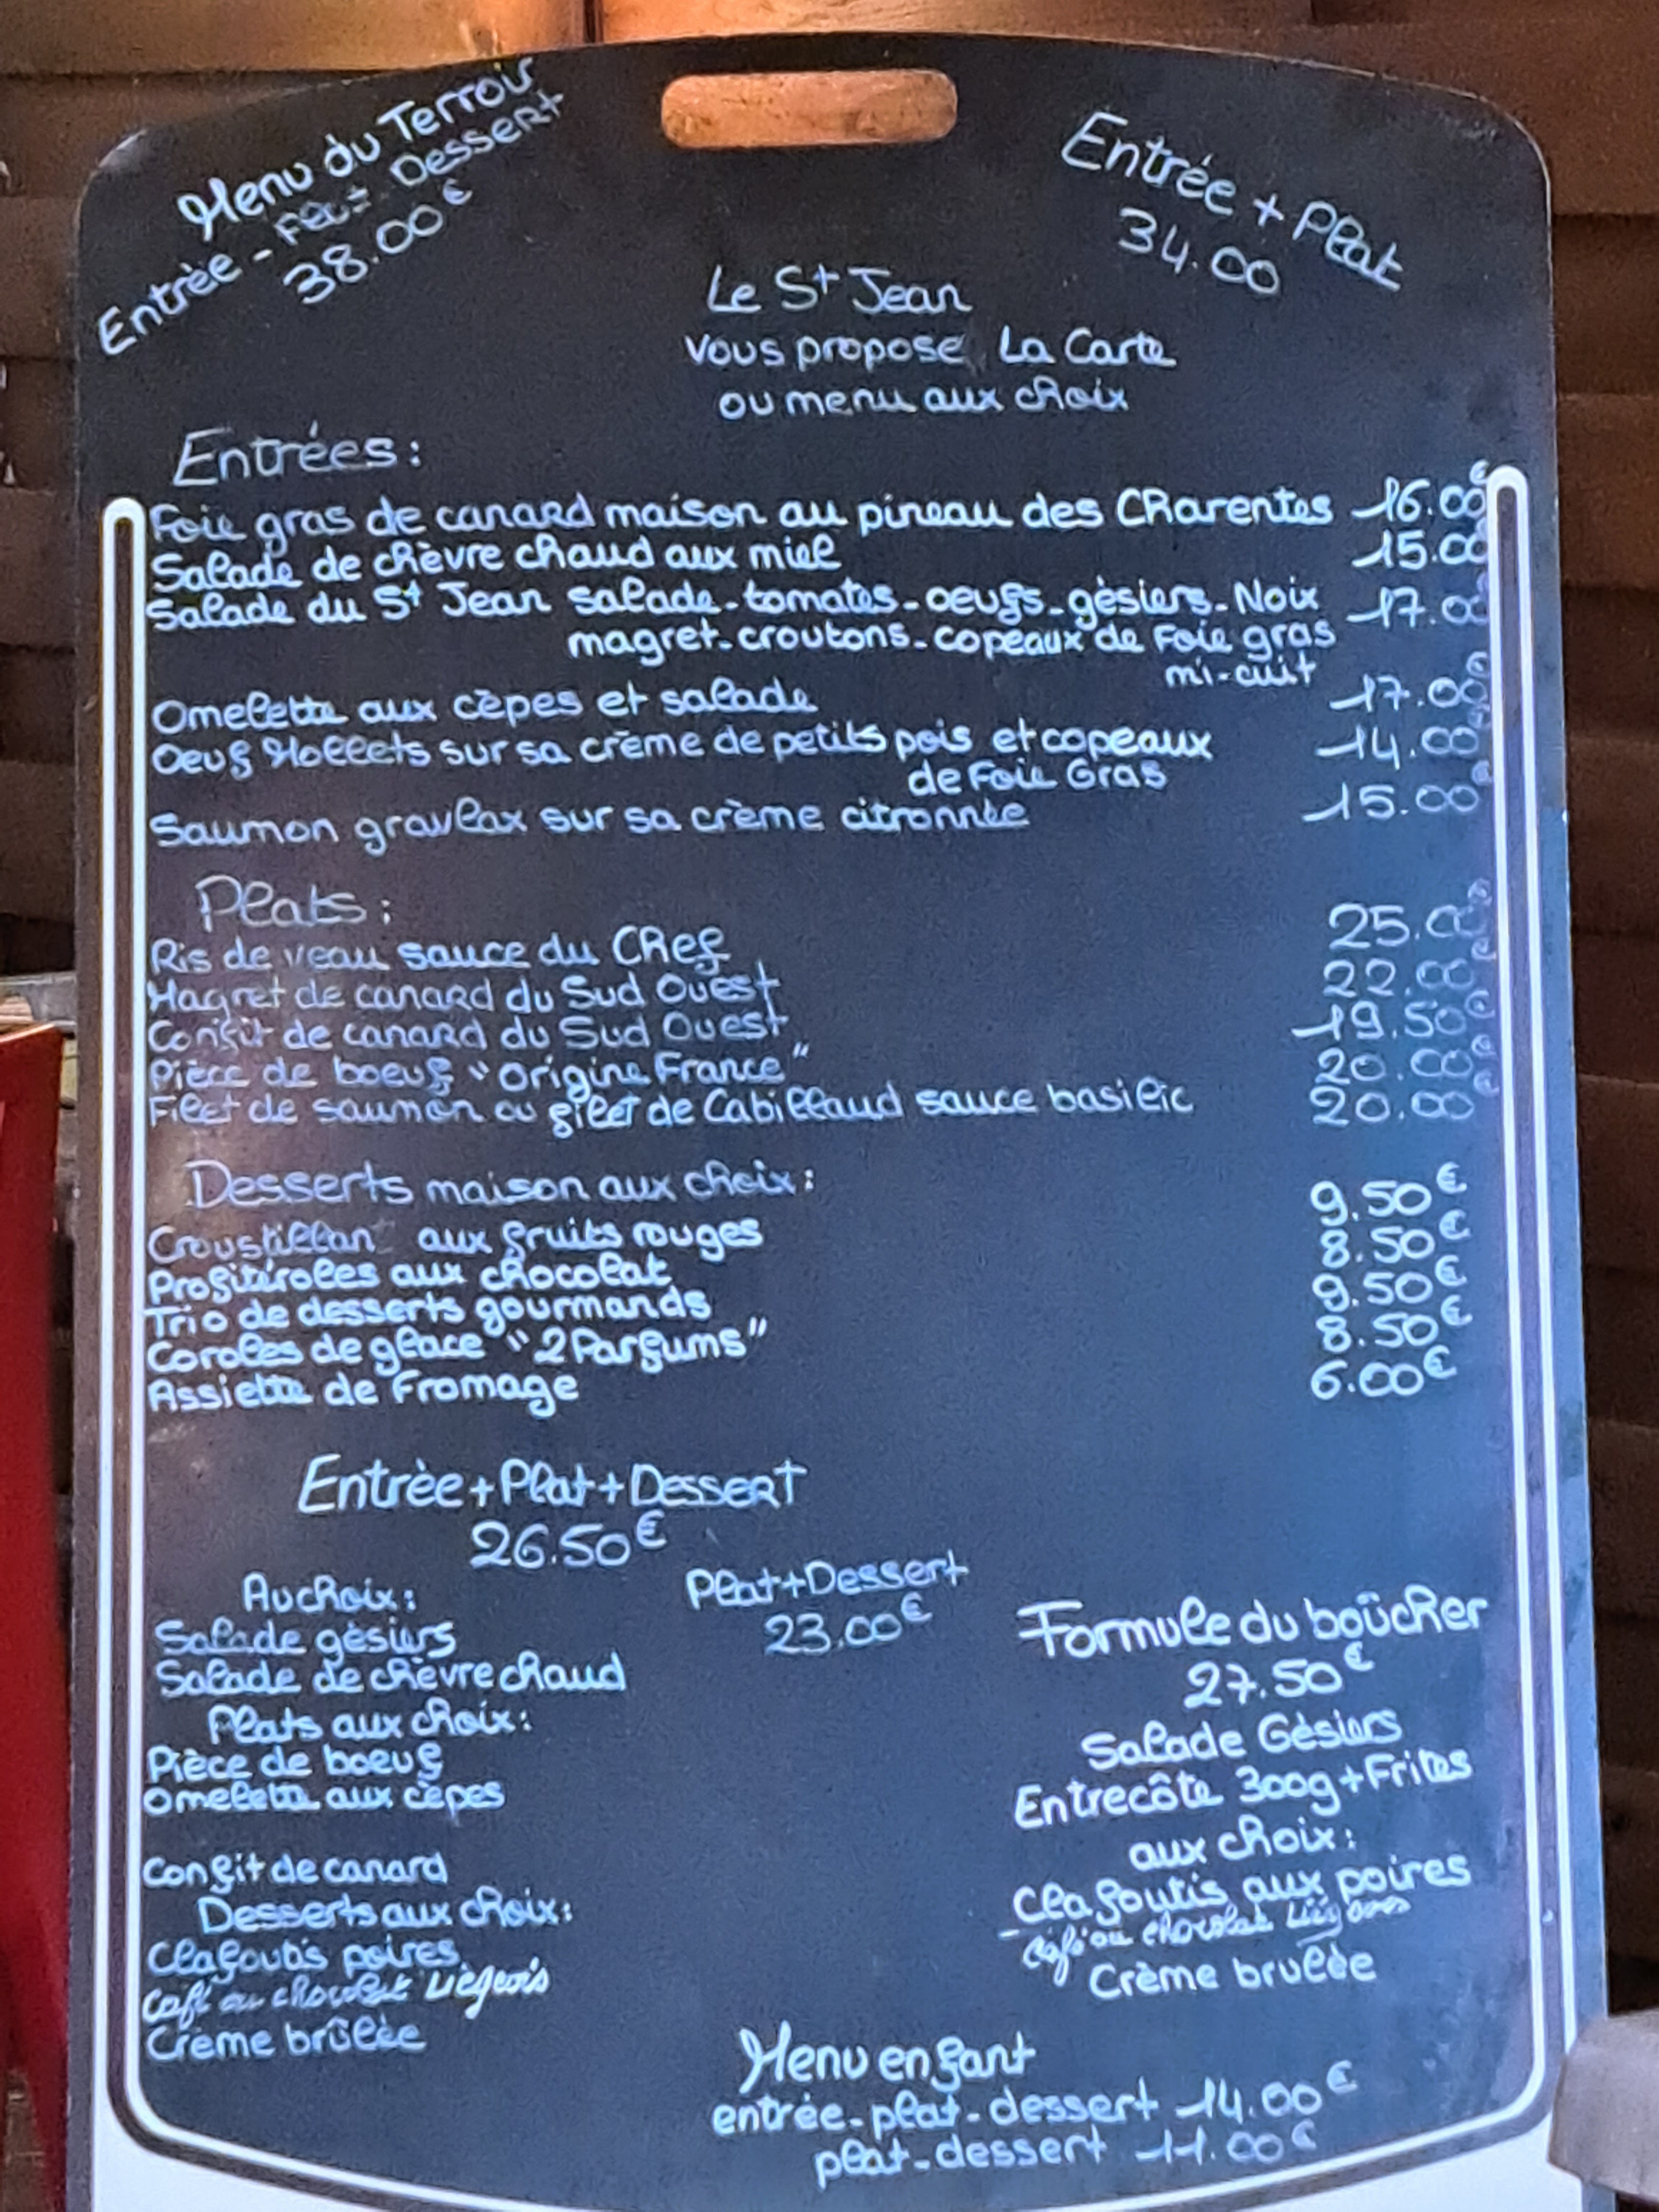 Menu du Terroir
Entrèe - Plat - Dessert
38.00€
Entrée + Plat
34.00
Le St Jean
vous propose La Carte
ou menu aux choix
Entrées:
Foie gras de canard maison au pineau des Charentes 16.00€
Salade de chèvre chaud aux miel 15.00
Salade du St Jean salade-tomates-oeufs-gèsiers-Noix 17.00
magret-croutons-copeaux de Foie gras
mi-cuit
Omelette aux cèpes et salade 17.00€
Oeuf Mollets sur sa crème de petits pois et copeaux 14.00€
de Foie Gras
Saumon gravlax sur sa crème citronnèe 15.00€
Plats:
Ris de veau sauce du Chef 25.00€
Magret de canard du Sud Ouest 22.00€
Confit de canard du Sud Ouest 19.50€
Pièce de boeuf "origine France" 20.00€
Filet de saumon ou filet de Cabillaud sauce basilic 20.00€
Desserts maison aux choix:
Croustillant aux fruits rouges 9.50€
Profitéroles aux chocolat 8.50€
Trio de desserts gourmands 9.50€
Coroles de glace "2 Parfums" 8.50€
Assiette de Fromage 6.00€
Entrèe+Plat+Dessert
26.50€
Plat+Dessert
23.00€
Au choix:
Salade gèsiers
Salade de chèvre chaud
Plats aux choix:
Pièce de boeuf
Omelette aux cèpes
Confit de canard
Desserts aux choix:
Clafoutis poires
Café ou chocolat Liègeois
Crème brûlèe
Formule du boücher
27.50€
Salade Gèsiers
Entrecôte 300g+Frites
aux choix:
Clafoutis aux poires
-Café ou chocolat Liégeois
Crème brulèe
Menu enfant
entrée-plat-dessert 14.00€
plat-dessert 11.00€